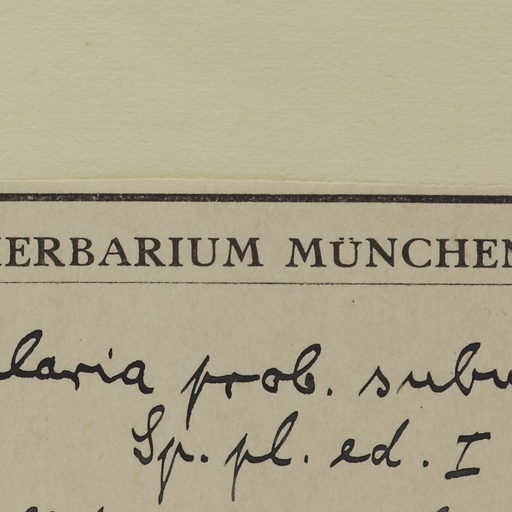 HERBARIUM MÜNCHEN
laria prob. subu
Sp. pl. ed. I